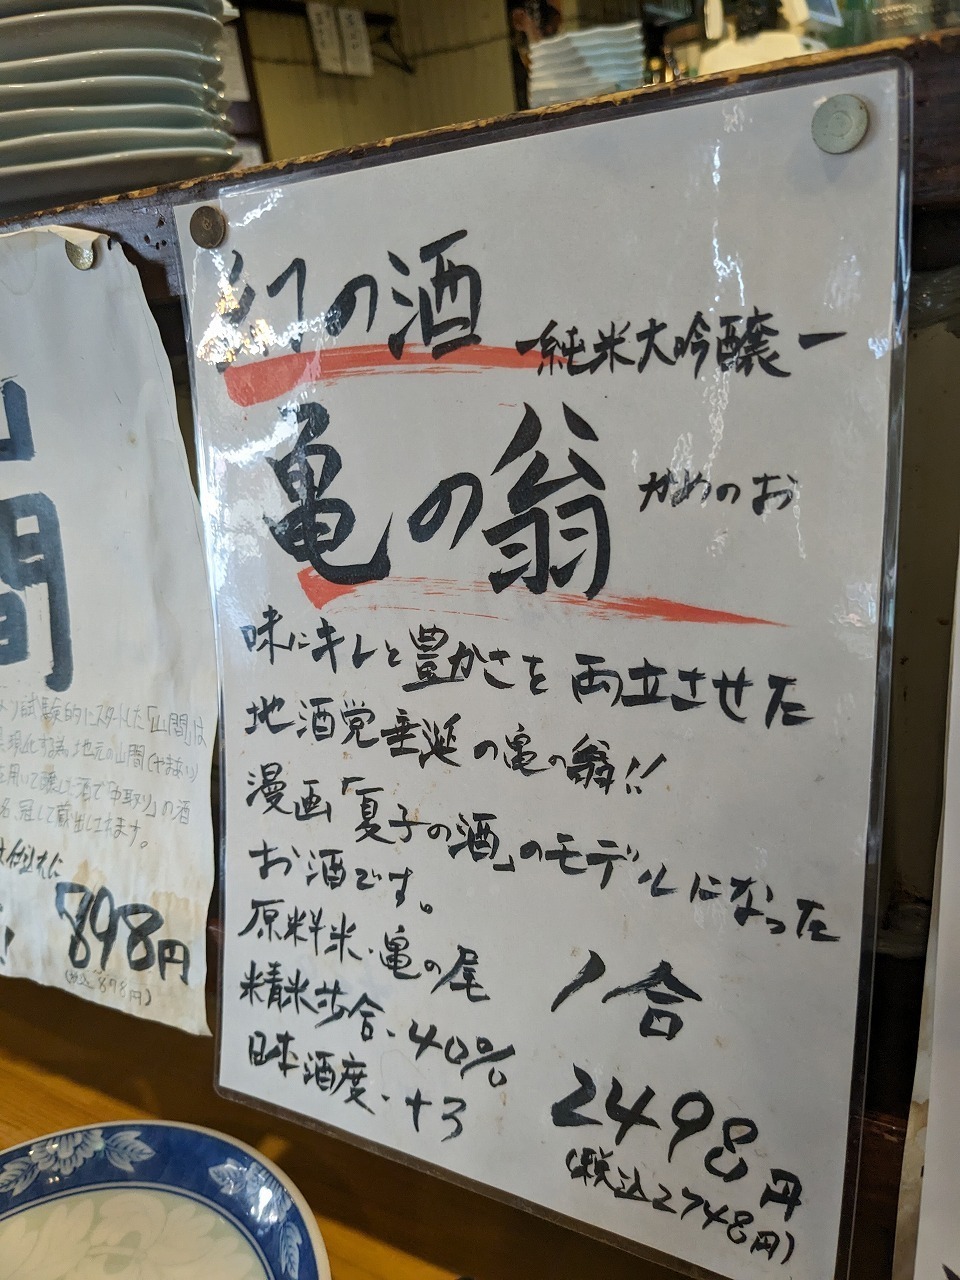 幻の酒
ー純米大吟醸ー
亀の翁 かめのお
味にキレと豊かさを両立させた
地酒党垂涎の亀の翁!!
漫画「夏子の酒」のモデルになった
お酒です。
原料米・亀の尾
精米歩合・40%
日本酒度・+3
1合
2498円
(税込2748円)
間
試験的にスタートした「山間」は
現化する為、地元の山間(やまあい)
用いて醸した酒で「中取り」の酒
冠して蔵出しされます。
898円